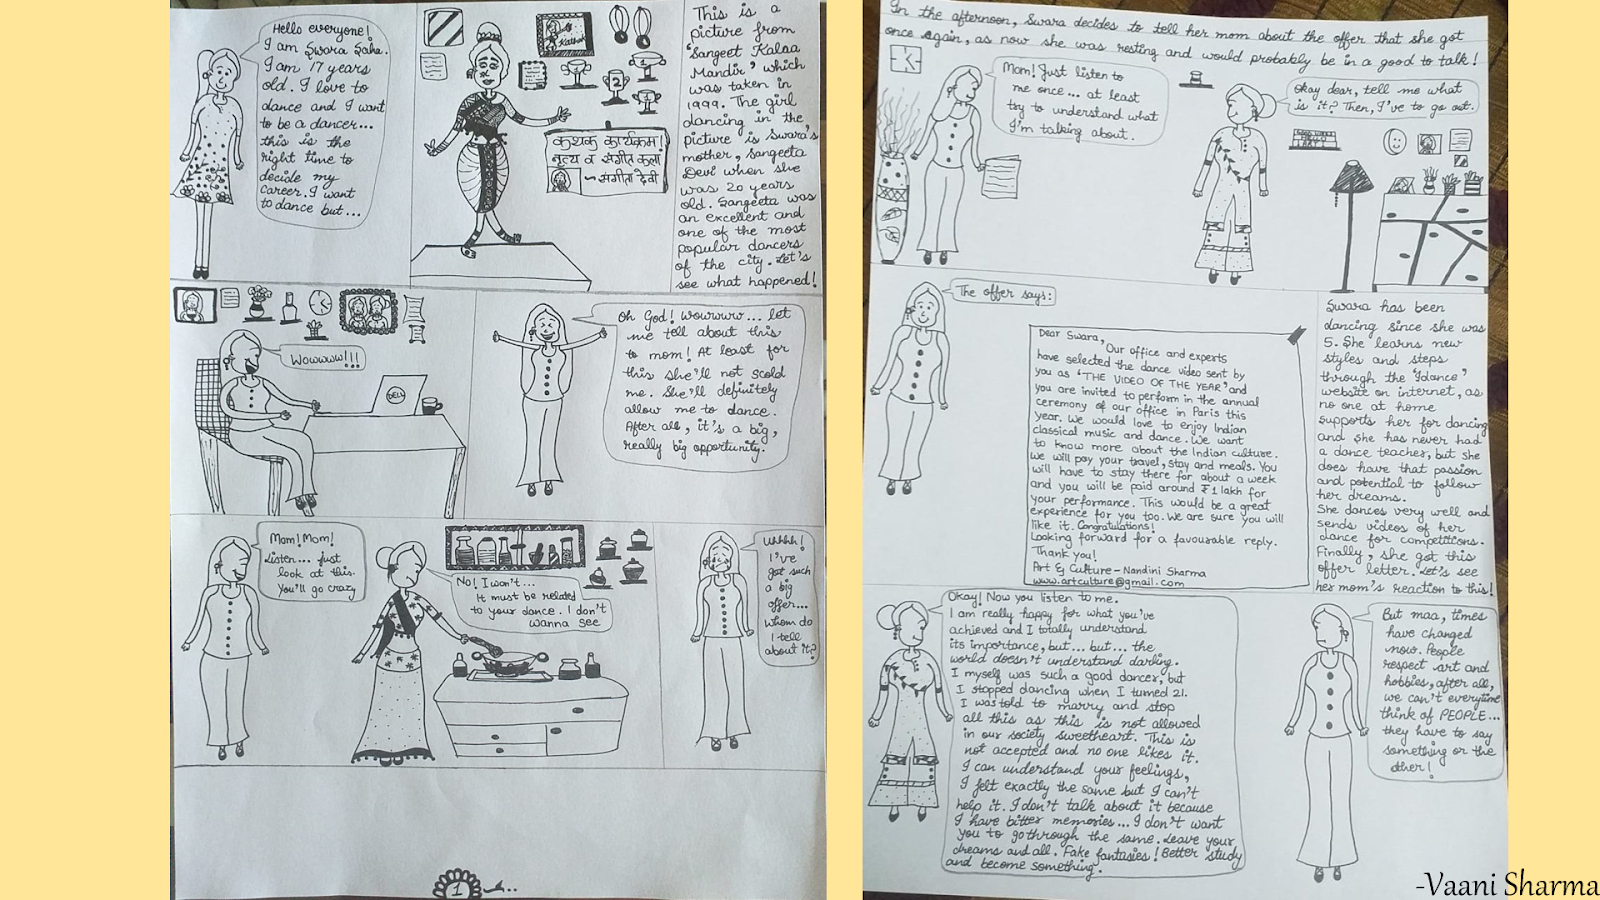 Hello everyone!
I am Swara Saha.
I am 17 years
old. I love to
dance and I want
to be a dancer...
this is the
right time to
decide my
career. I want
to dance but...
Kathak
2
1
1
कथक कार्यक्रम!
नृत्य व संगीत कला
~ संगीता देवी
This is a
picture from
'Sangeet Kalaa
Mandir' which
was taken in
1999. The girl
dancing in the
picture is Swara's
mother, Sangeeta
Devi when she
was 20 years
old. Sangeeta was
an excellent and
one of the most
popular dancers
of the city. Let's
see what happened!
Wowwww!!!
DELL
Oh God! Wowwww... let
me tell about this
to mom! At least for
this she'll not scold
me. She'll definitely
allow me to dance.
After all, it's a big,
really big opportunity.
Mom! Mom!
Listen... just
look at this.
You'll go crazy
No! I won't...
It must be related
to your dance. I don't
wanna see
Uhhhh!
I've
got such
a big
offer...
whom do
I tell
about it?
1
In the afternoon, Swara decides to tell her mom about the offer that she got
once again, as now she was resting and would probably be in a good to talk!
Mom! Just listen to
me once... at least
try to understand what
I'm talking about.
Okay dear, tell me what
is it? Then, I've to go out.
The offer says:
Dear Swara,
Our office and experts
have selected the dance video sent by
you as 'THE VIDEO OF THE YEAR' and
you are invited to perform in the annual
ceremony of our office in Paris this
year. We would love to enjoy Indian
classical music and dance. We want
to know more about the Indian culture.
We will pay your travel, stay and meals. You
will have to stay there for about a week
and you will be paid around ₹1 lakh for
your performance. This would be a great
experience for you too. We are sure you will
like it. Congratulations!
Looking forward for a favourable reply.
Thank you!
Art & Culture - Nandini Sharma
www.artculture@gmail.com
Swara has been
dancing since she was
5. She learns new
styles and steps
through the 'Idance'
website on internet, as
no one at home
supports her for dancing
and she has never had
a dance teacher, but she
does have that passion
and potential to follow
her dreams.
She dances very well and
sends videos of her
dance for competitions.
Finally, she got this
offer letter. Let's see
her mom's reaction to this!
Okay! Now you listen to me.
I am really happy for what you've
achieved and I totally understand
its importance, but... but... the
world doesn't understand darling.
I myself was such a good dancer, but
I stopped dancing when I turned 21.
I was told to marry and stop
all this as this is not allowed
in our society sweetheart. This is
not accepted and no one likes it.
I can understand your feelings,
I felt exactly the same but I can't
help it. I don't talk about it because
I have bitter memories... I don't want
you to go through the same. Leave your
dreams and all. Fake fantasies! Better study
and become something.
But maa, times
have changed
now. People
respect art and
hobbies, after all,
we can't everytime
think of PEOPLE...
they have to say
something or the
other!
-Vaani Sharma